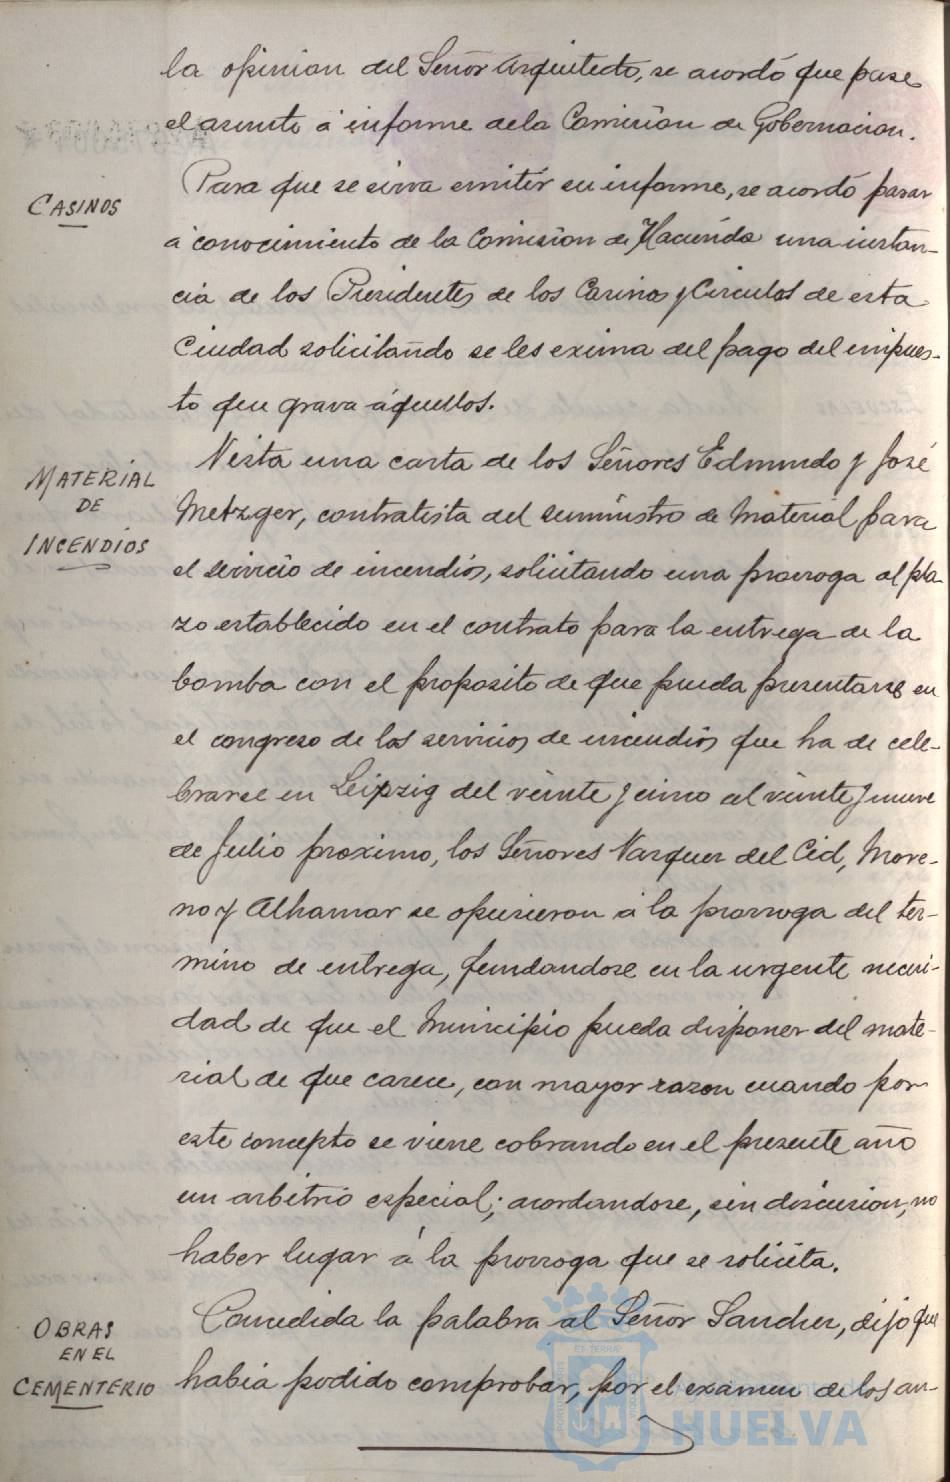 la opinion del Señor Arquitecto, se acordó que pase
el asunto á informe de la Comisión de Gobernacion.
CASINOS
Para que se sirva emitir su informe, se acordó pasar
á conocimiento de la Comision de Hacienda una instan-
cia de los Presidentes de los Casinos y Circulos de esta
Ciudad solicitando se les exima del pago del impues-
to que grava áquellos.
MATERIAL
DE
INCENDIOS
Vista una carta de los Señores Edmundo y José
Metzger, contratista del suministro de Material para
el servicio de incendios, solicitando una prorroga al pla-
zo establecido en el contrato para la entrega de la
bomba con el proposito de que pueda presentarse en
el congreso de los servicios de incendios que ha de cele-
brarse en Leipzig del veinte y cinco al veinte y nueve
de Julio proximo, los Señores Vazquez del Cid, More-
no y Alhamar se opusieron á la prorroga del ter-
mino de entrega, fundandose en la urgente necesi-
dad de que el Municipio pueda disponer del mate-
rial de que carece, con mayor razon cuando por
este concepto se viene cobrando en el presente año
un arbitrio especial; acordandose, sin discusion, no
haber lugar á la prorroga que se solicita.
OBRAS
EN EL
CEMENTERIO
Concedida la palabra al Señor Sanchez, dijo que
habia podido comprobar, por el examen de los an-
HUELVA